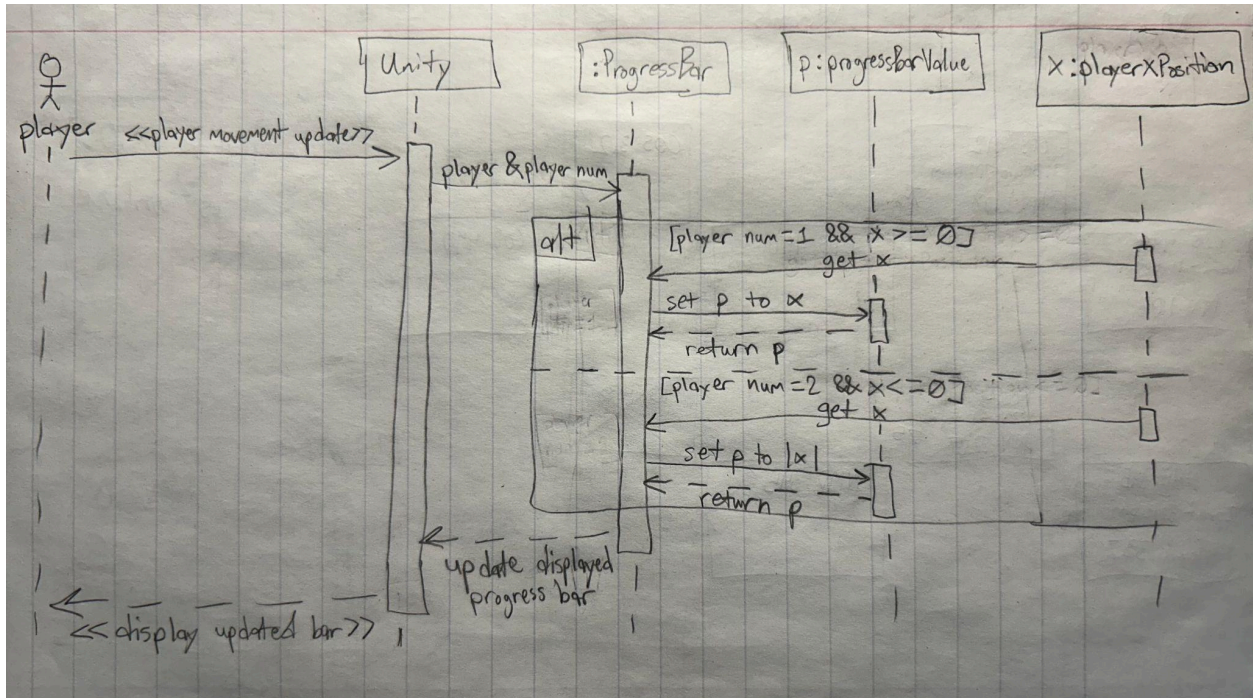 Unity
:ProgressBar
p:progressBarValue
x:playerXPosition
player
<<player movement update>>
player & player num
alt
[player num=1 && x>=0]
get x
set p to x
return p
[player num=2 && x<=0]
get x
set p to |x|
return p
update displayed
progress bar
<<display updated bar>>